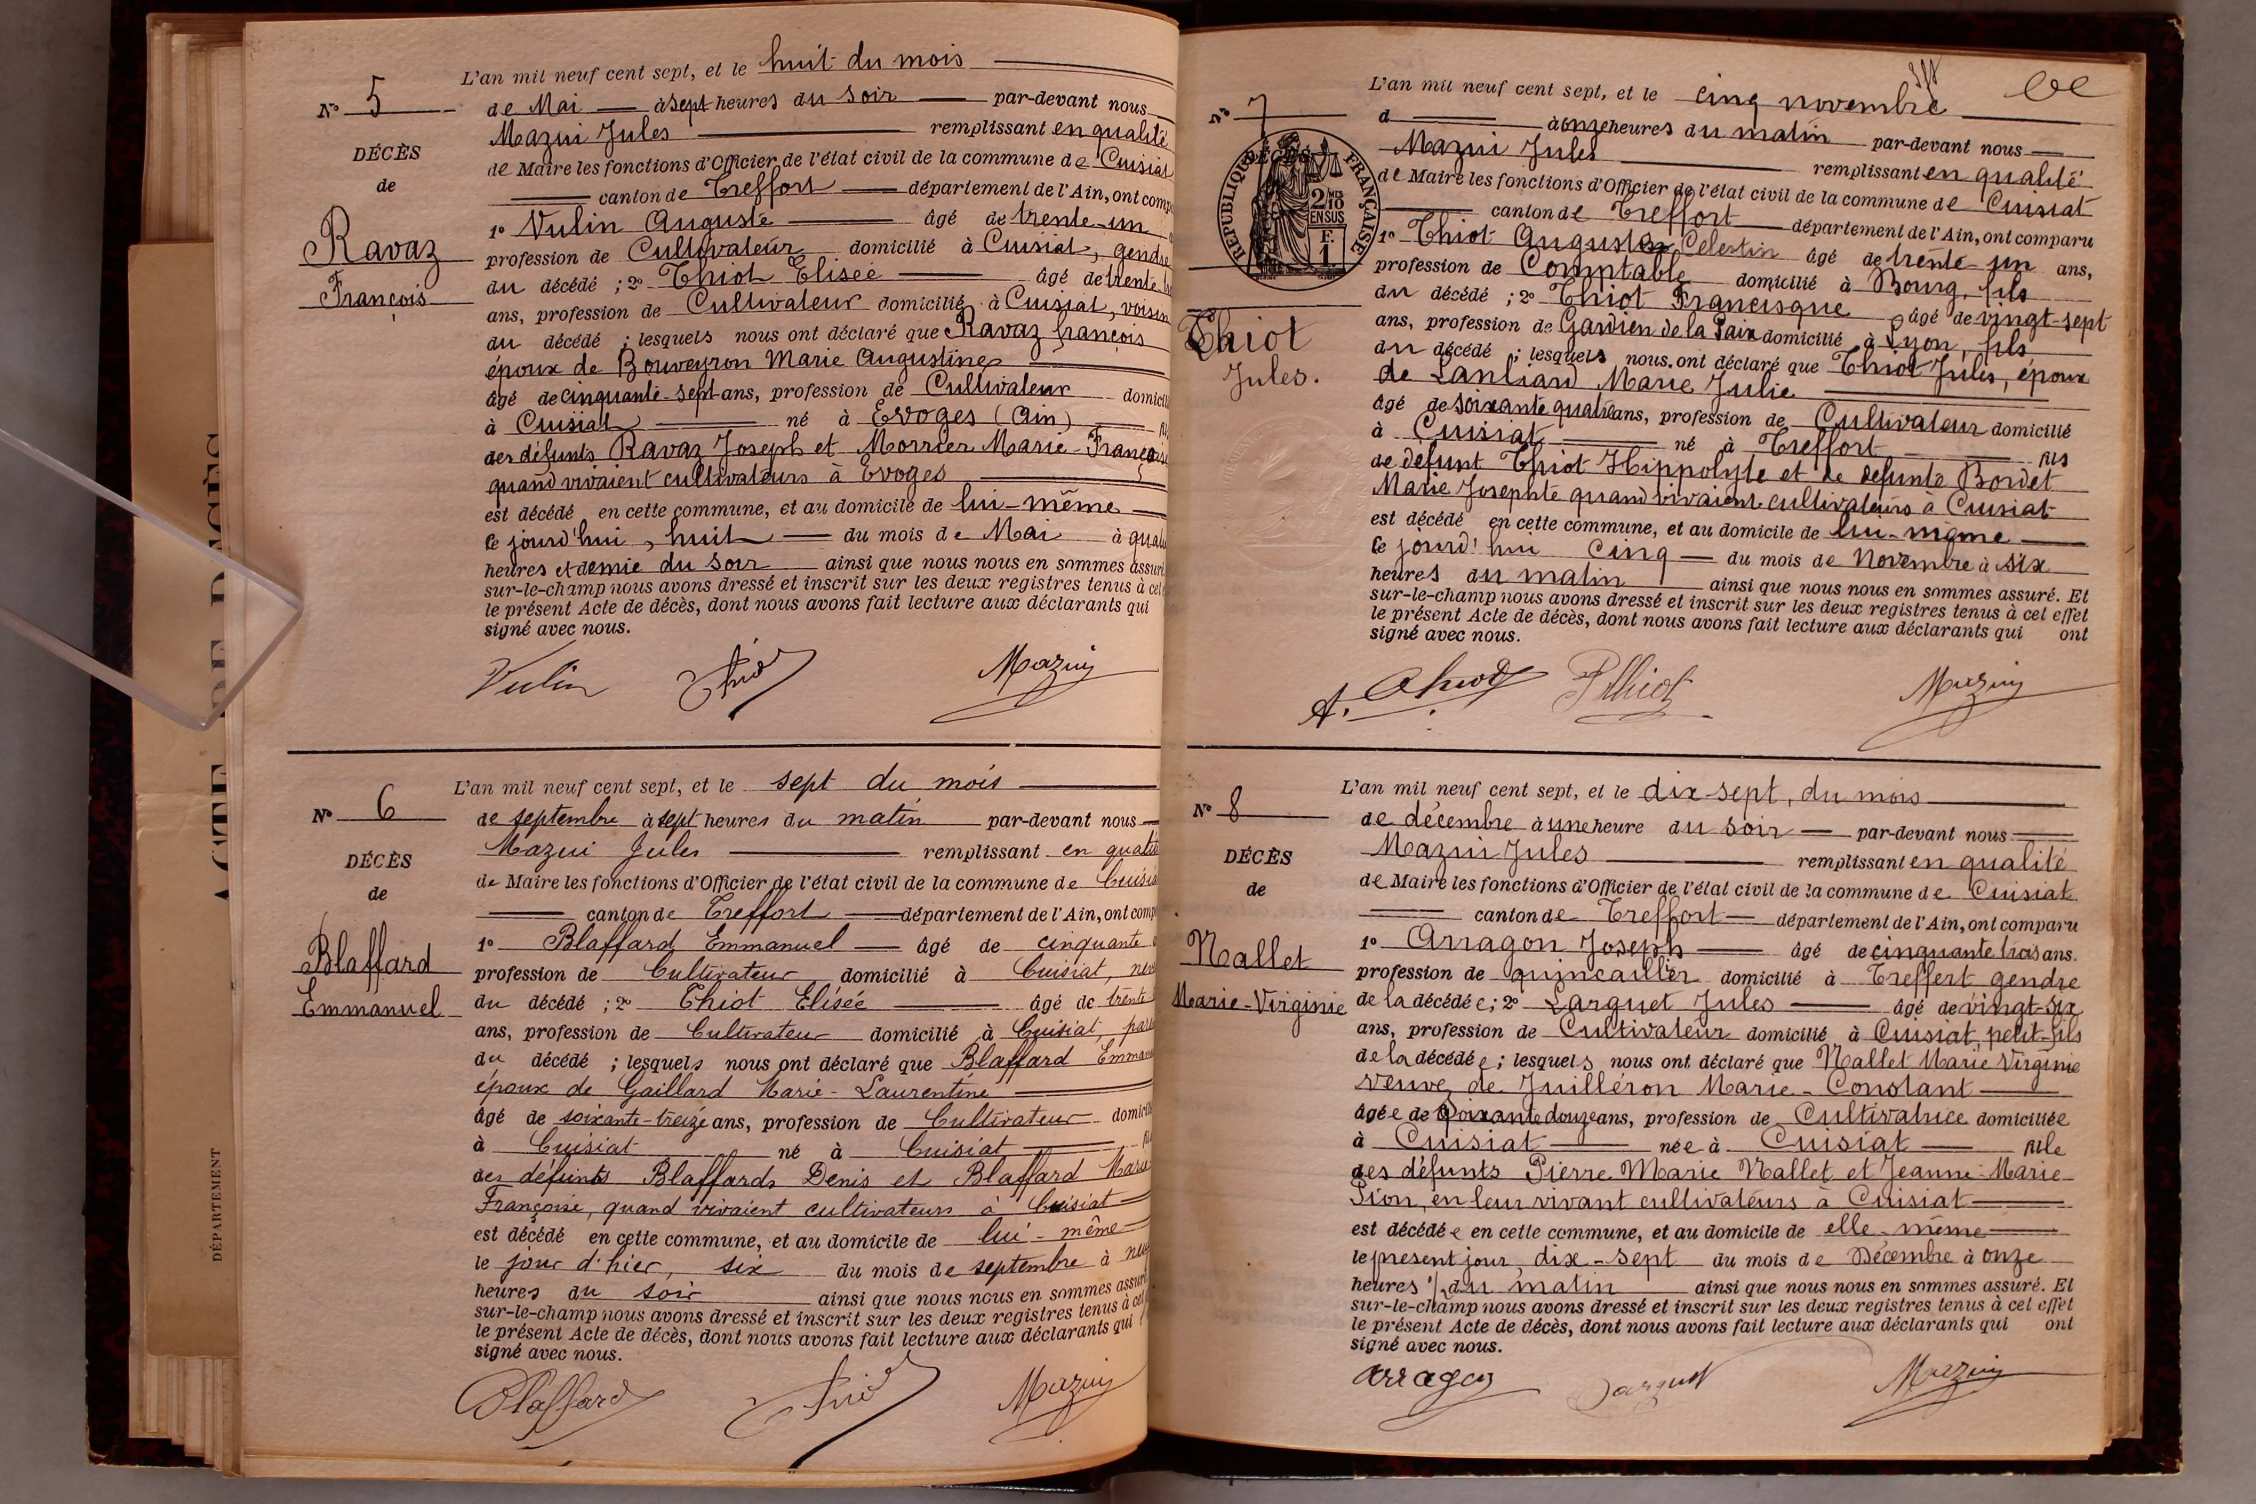 N° 5
DÉCÈS
de
Ravaz
François
L'an mil neuf cent sept, et le huit du mois
de Mai à sept heures du soir par-devant nous
Mazui Jules remplissant en qualité
de Maire les fonctions d'Officier de l'état civil de la commune de Cuisiat
canton de Treffort département de l'Ain, ont comp
1° Vulin Auguste âgé de trente-un
profession de Cultivateur domicilié à Cuisiat, gendre
du décédé ; 2° Thiot Elisée âgé de trente
ans, profession de Cultivateur domicilié à Cuisiat, voisin
du décédé ; lesquels nous ont déclaré que Ravaz françois
époux de Bouveyron Marie Augustine
âgé de cinquante-sept ans, profession de Cultivateur domicili
à Cuisiat né à Evoges (Ain)
des défunts Ravaz Joseph et Morrier Marie-Françoise
quand vivaient cultivateurs à Evoges
est décédé en cette commune, et au domicile de lui-même
Ce jourd'hui, huit du mois de Mai à quat
heures et demie du soir ainsi que nous nous en sommes assuré
sur-le-champ nous avons dressé et inscrit sur les deux registres tenus à cet
le présent Acte de décès, dont nous avons fait lecture aux déclarants qui
signé avec nous.
Vulin Thiot Mazuy
N° 6
DÉCÈS
de
Blaffard
Emmanuel
L'an mil neuf cent sept, et le sept du mois
de septembre à sept heures du matin par-devant nous
Mazui Jules remplissant en qualité
de Maire les fonctions d'Officier de l'état civil de la commune de Cuisia
canton de Treffort département de l'Ain, ont comp
1° Blaffard Emmanuel âgé de cinquante
profession de Cultivateur domicilié à Cuisiat, nev
du décédé ; 2° Thiot Elisée âgé de trente
ans, profession de Cultivateur domicilié à Cuisiat, par
du décédé ; lesquels nous ont déclaré que Blaffard Emman
époux de Gaillard Marie-Laurentine
âgé de soixante-treize ans, profession de Cultivateur domicili
à Cuisiat né à Cuisiat
des défunts Blaffards Denis et Blaffard Marie
Françoise, quand vivaient cultivateurs à Cuisiat
est décédé en cette commune, et au domicile de lui-même
le jour d'hier, six du mois de septembre à neu
heures du soir ainsi que nous nous en sommes assuré
sur-le-champ nous avons dressé et inscrit sur les deux registres tenus à cet
le présent Acte de décès, dont nous avons fait lecture aux déclarants qui
signé avec nous.
Blaffard Thiot Mazuy
DÉPARTEMENT
N° 7
DÉCÈS
RÉPUBLIQUE FRANÇAISE
2/10
EN SUS
F. 1
Thiot
Jules.
L'an mil neuf cent sept, et le cinq novembre
d à onze heures du matin par-devant nous
Mazui Jules remplissant en qualité
de Maire les fonctions d'Officier de l'état civil de la commune de Cuisiat
canton de Treffort département de l'Ain, ont comparu
1° Thiot Auguste Celestin âgé de trente-un ans,
profession de Comptable domicilié à Bourg, fils
du décédé ; 2° Thiot Francisque âgé de vingt-sept
ans, profession de Gardien de la Paix domicilié à Lyon, fils
du décédé ; lesquels nous ont déclaré que Thiot Jules, époux
de Lanliard Marie Julie
âgé de soixante quatre ans, profession de Cultivateur domicilié
à Cuisiat né à Treffort fils
de défunt Thiot Hippolyte et de defunte Bordet
Marie Josephte quand vivaient cultivateurs à Cuisiat
est décédé en cette commune, et au domicile de lui-même
Ce jourd'hui cinq du mois de Novembre à six
heures du matin ainsi que nous nous en sommes assuré. Et
sur-le-champ nous avons dressé et inscrit sur les deux registres tenus à cet effet
le présent Acte de décès, dont nous avons fait lecture aux déclarants qui ont
signé avec nous.
A. Thiot Thiot Mazuy
N° 8
DÉCÈS
de
Nallet
Marie-Virginie
L'an mil neuf cent sept, et le dix-sept, du mois
de décembre à une heure du soir par-devant nous
Mazui Jules remplissant en qualité
de Maire les fonctions d'Officier de l'état civil de la commune de Cuisiat
canton de Treffort département de l'Ain, ont comparu
1° Arragon Joseph âgé de cinquante trois ans.
profession de quincaillier domicilié à Treffert gendre
de la décédée ; 2° Larguet Jules âgé de vingt-six
ans, profession de Cultivateur domicilié à Cuisiat, petit-fils
de la décédée ; lesquels nous ont déclaré que Nallet Marie Virginie
veuve de Juilléron Marie-Constant
âgée de Soixante douze ans, profession de Cultivatrice domiciliée
à Cuisiat née à Cuisiat fille
des défunts Pierre Marie Nallet et Jeanne-Marie
Sion, en leur vivant cultivateurs à Cuisiat
est décédée en cette commune, et au domicile de elle-même
le present jour, dix-sept du mois de Décembre à onze
heures 1/2 du matin ainsi que nous nous en sommes assuré. Et
sur-le-champ nous avons dressé et inscrit sur les deux registres tenus à cet effet
le présent Acte de décès, dont nous avons fait lecture aux déclarants qui ont
signé avec nous.
Arragon Larguet Mazuy